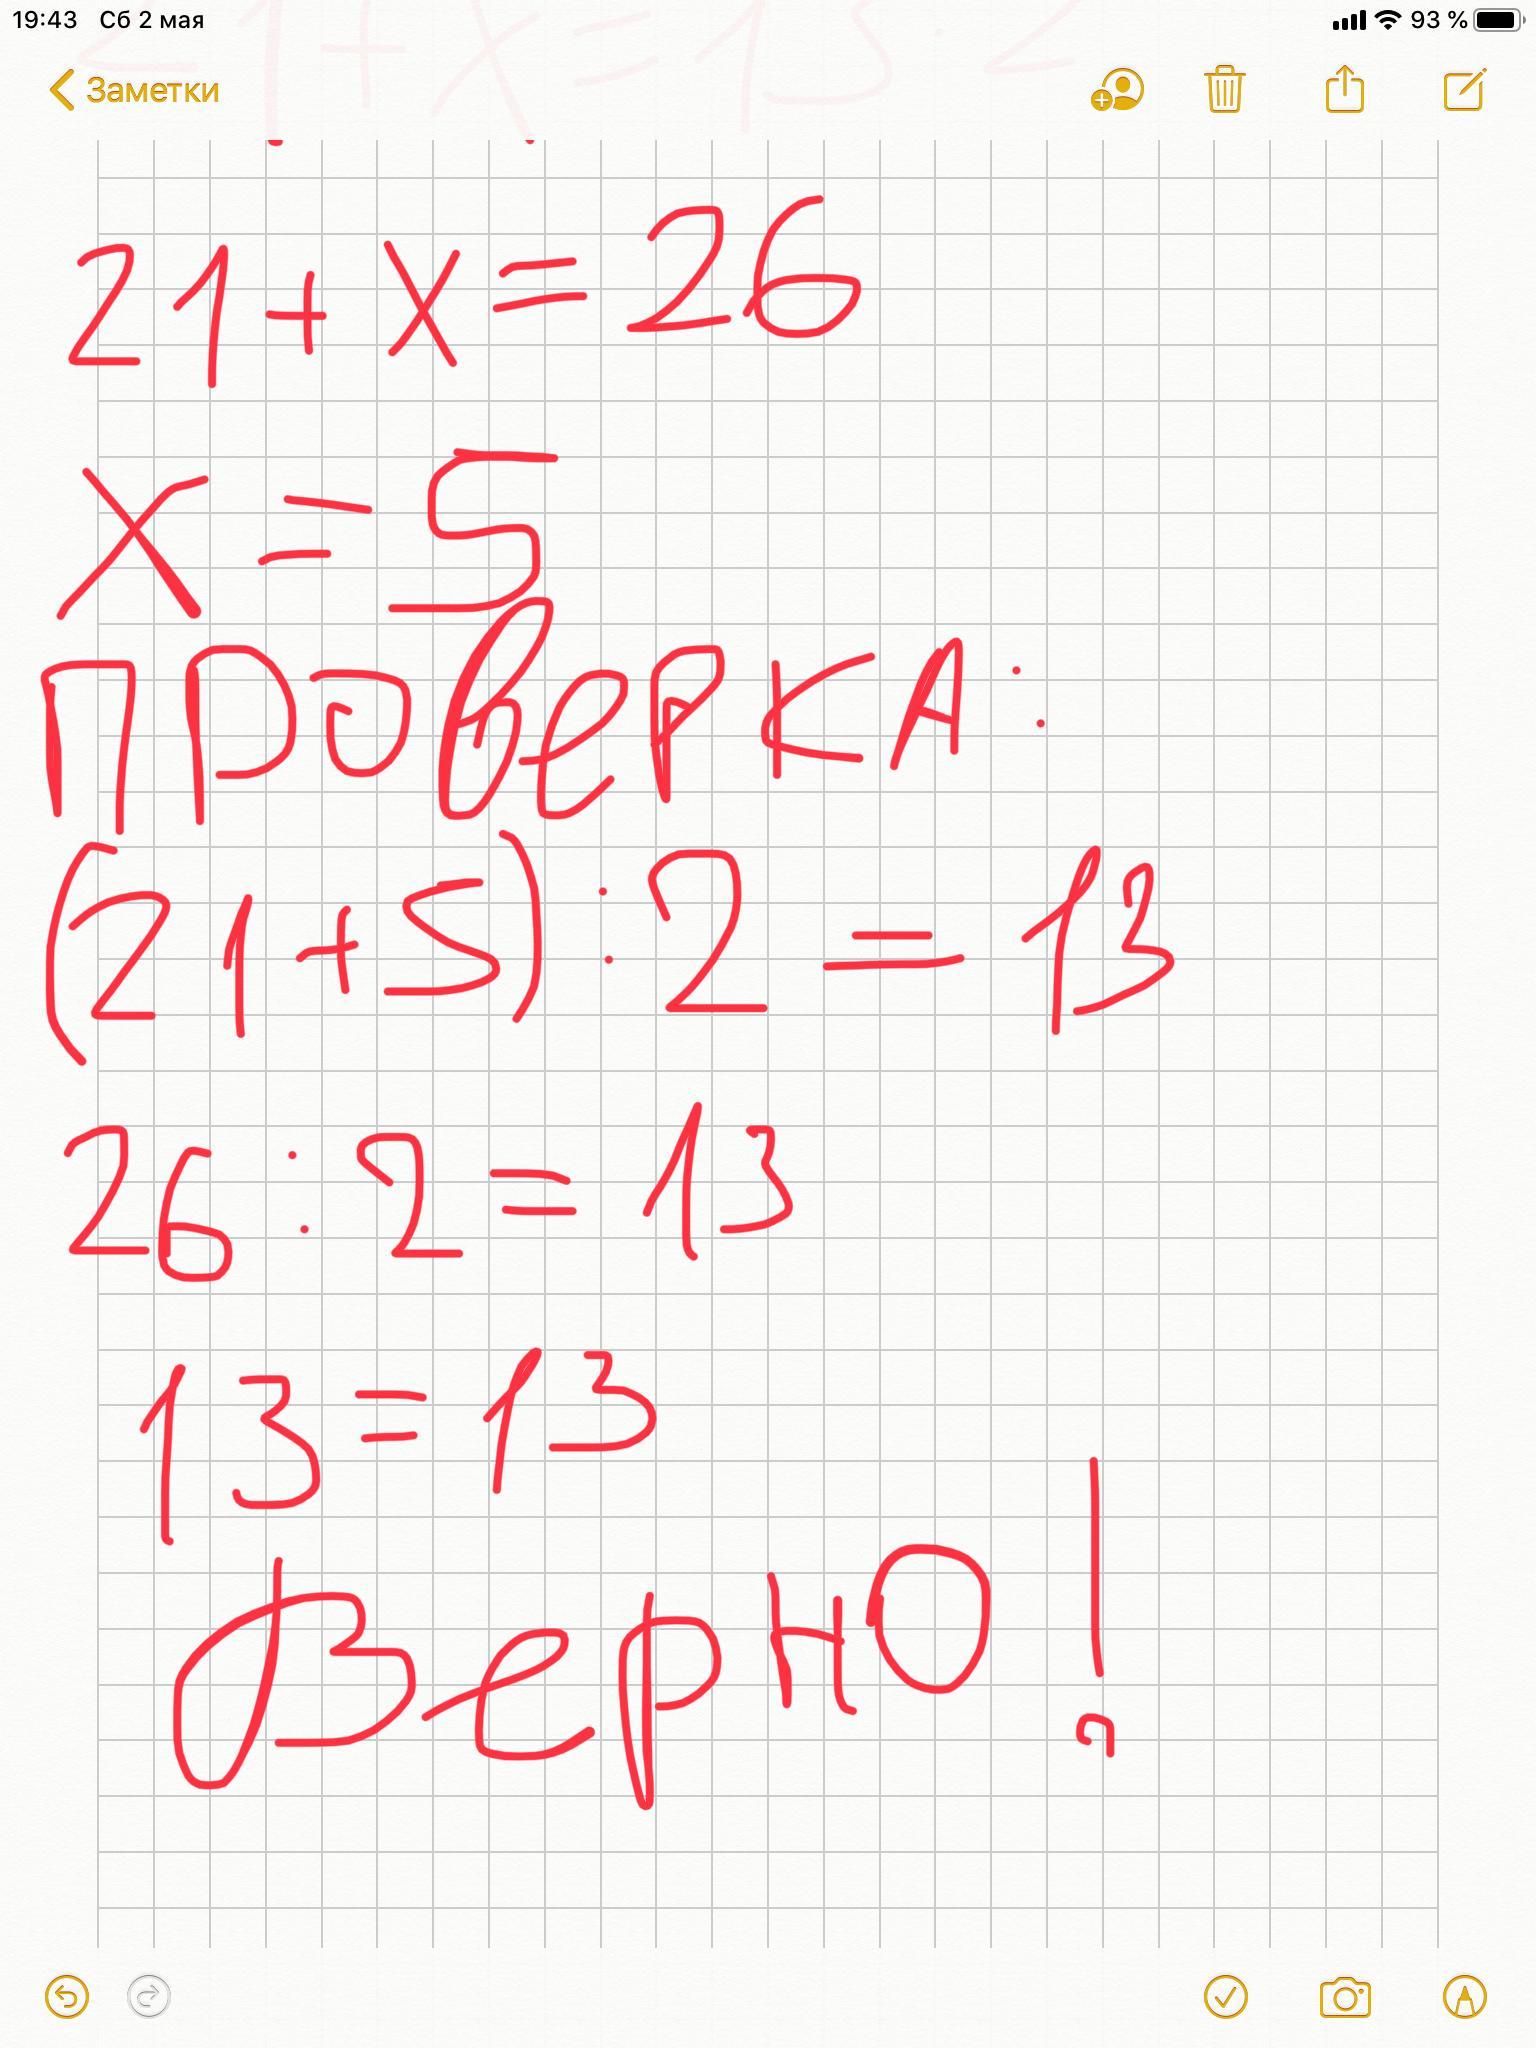 19:43 Сб 2 мая 93 %
21+x=13·2
Заметки
21+x=26
x=5
Проверка:
(21+5):2=13
26:2=13
13=13
Верно!